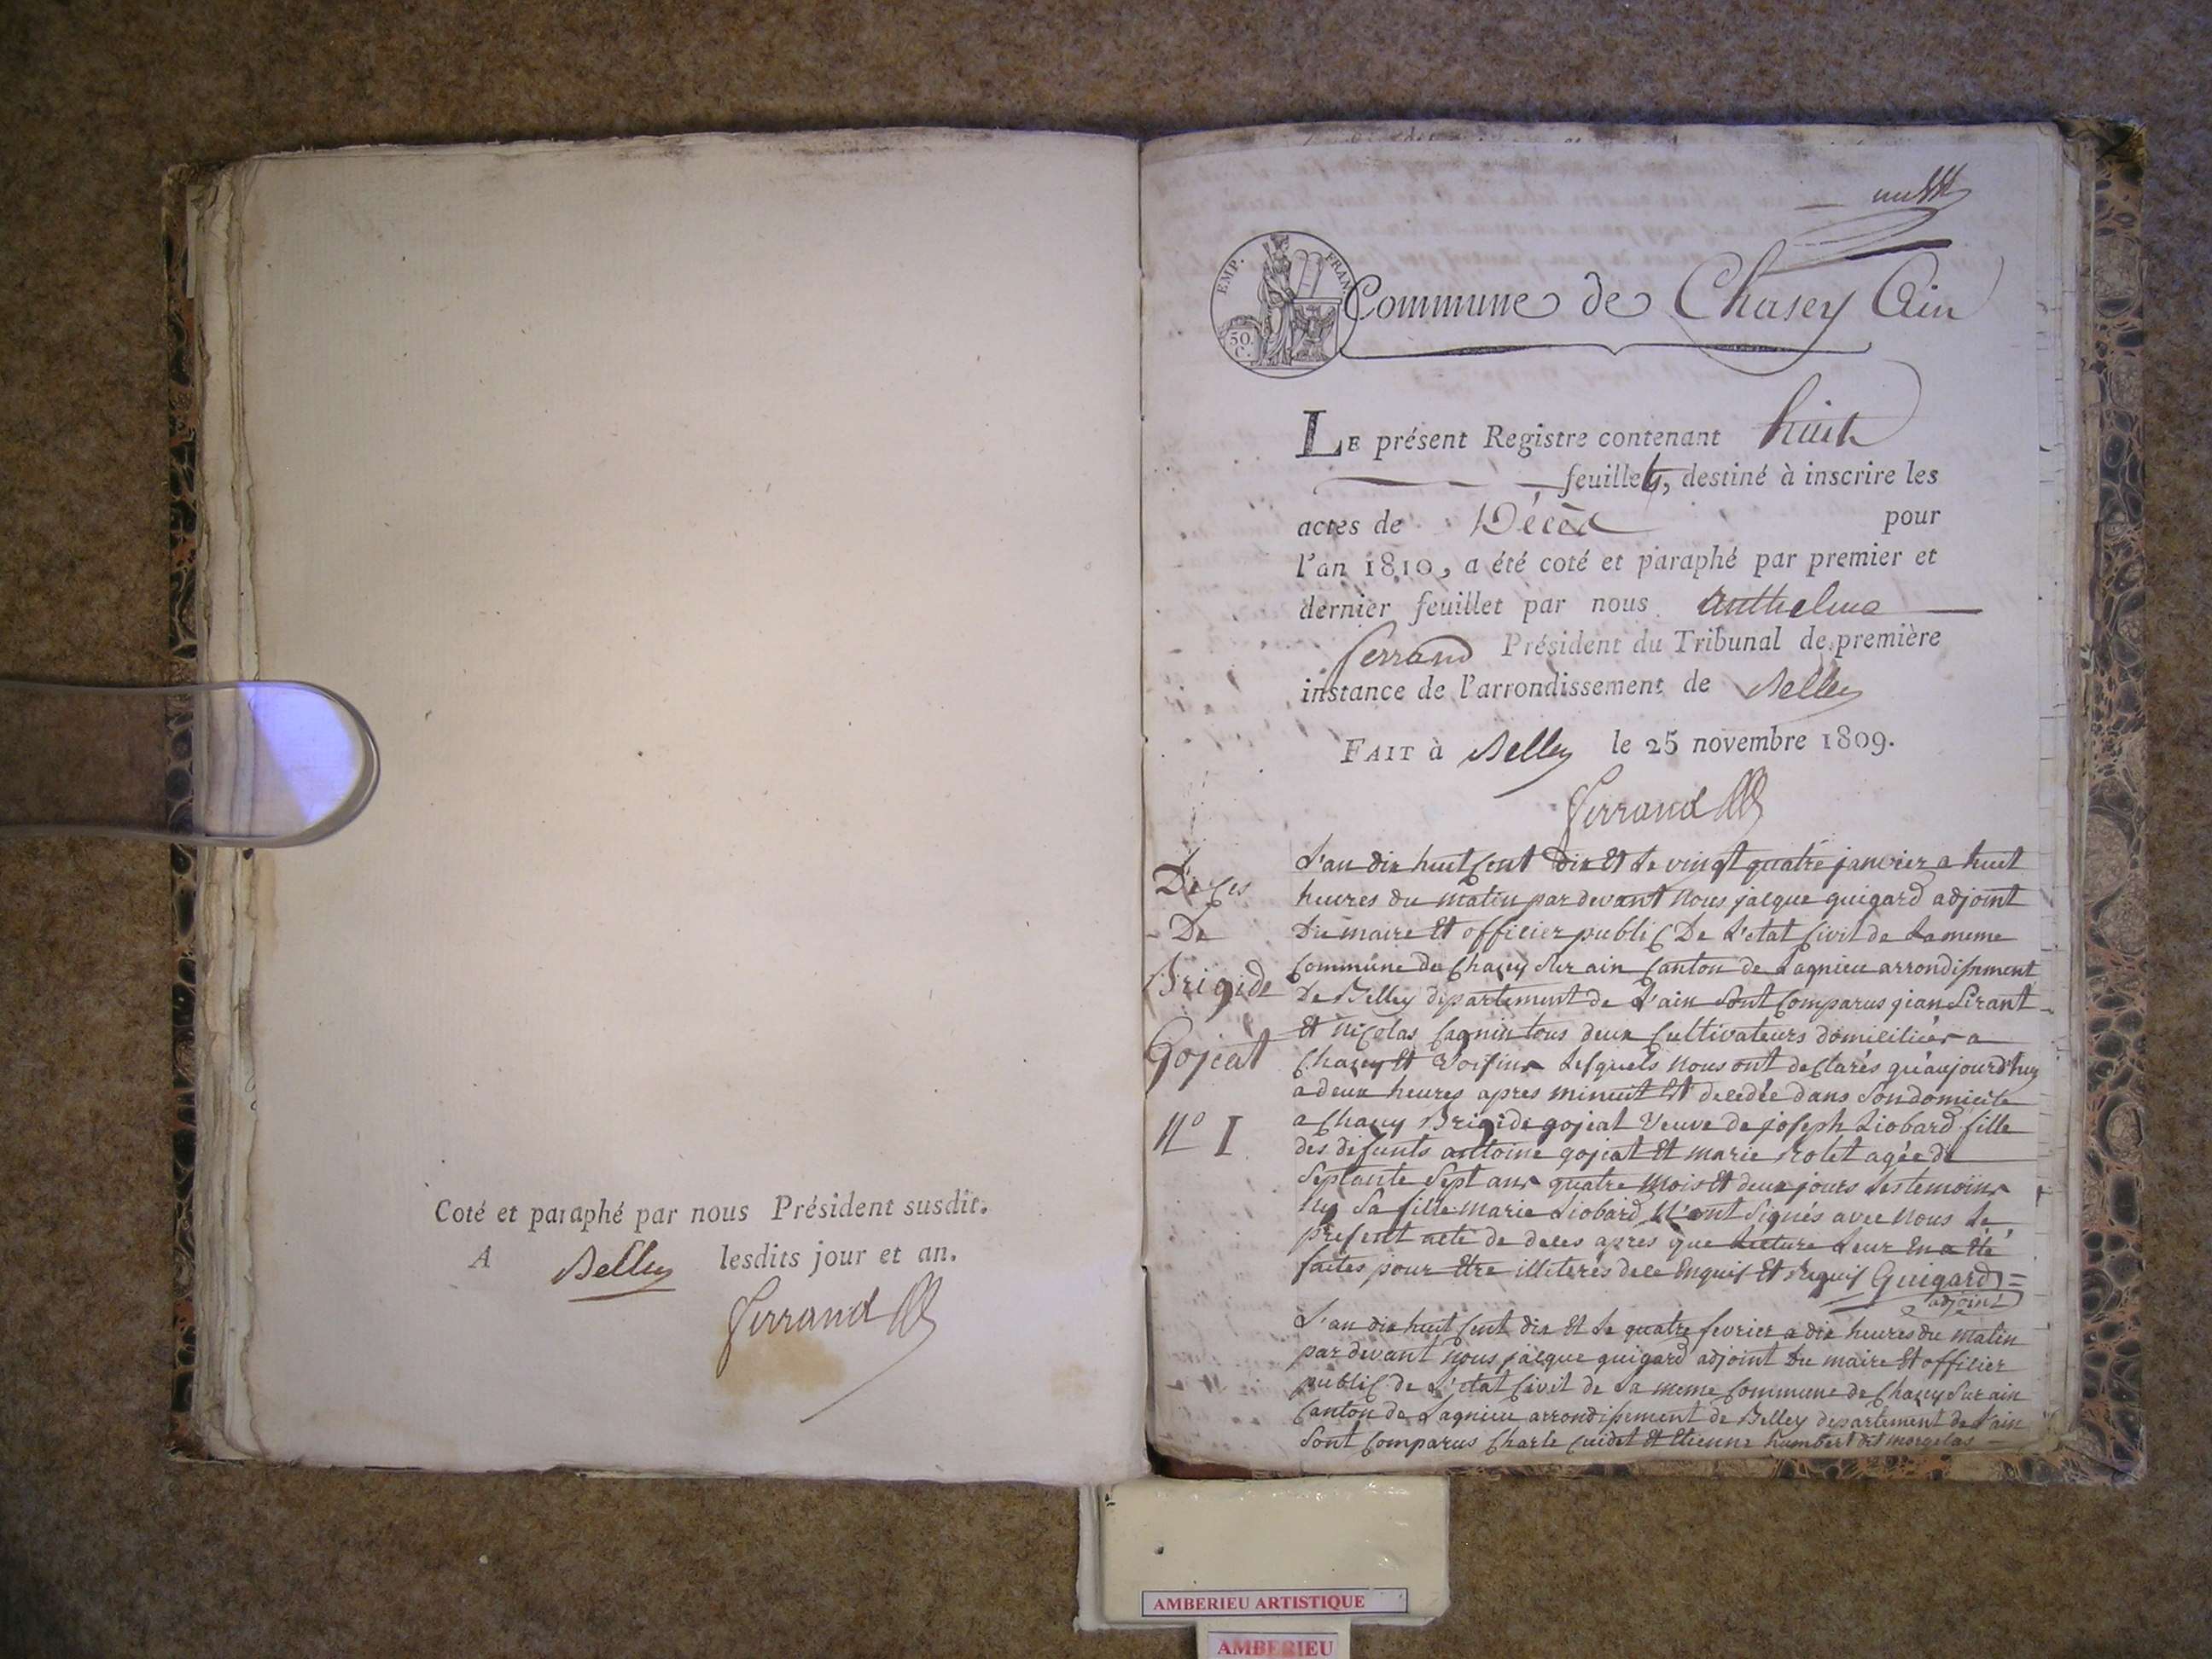 Coté et paraphé par nous Président susdit.
A Belley lesdits jour et an.
Ferrand
EMP. FRAN.
50. C.
Commune de Chasey Ain
LE présent Registre contenant huit
feuillets, destiné à inscrire les
actes de Décès pour
l'an 1810, a été coté et paraphé par premier et
dernier feuillet par nous Anthelme
Ferrand Président du Tribunal de première
instance de l'arrondissement de Belley
FAIT à Belley le 25 novembre 1809.
Ferrand
Deces
De
Brigide
Gojeat
N° I
L'an dix huit cent dix Et le vingt quatre janvier a huit
heures du matin par devant nous jacque guigard adjoint
Du maire Et officier public De L'etat civil de La meme
commune de chazey sur ain canton de Lagnieu arrondissement
De Belley departement de L'ain sont comparus jean
Et nicolas cagnin tous deux cultivateurs domiciliés a
chazey Et voisins Lesquels nous ont declarés qu'aujourd'huy
a deux heures apres minuit Est decedée dans son domicile
a chazey Brigide gojeat veuve de joseph Liobard fille
des defunts antoine gojeat Et marie rolet agée de
septante sept ans quatre mois Et deux jours Les temoins
ny sa fille marie Liobard N'ont signés avec nous Le
present acte de deces apres que Lecture Leur En a Eté
faites pour Etre illiteres de ce Enquis Et Requis Guigard
adjoint
L'an dix huit cent dix Et Le quatre fevrier a dix heures du matin
par devant nous jacque guigard adjoint Du maire Et officier
public de L'etat civil de La meme commune de chazey sur ain
canton de Lagnieu arrondissement de Belley departement de L'ain
sont comparus charle cuidet Et Etienne humbert dit
AMBERIEU ARTISTIQUE
AMBERIEU